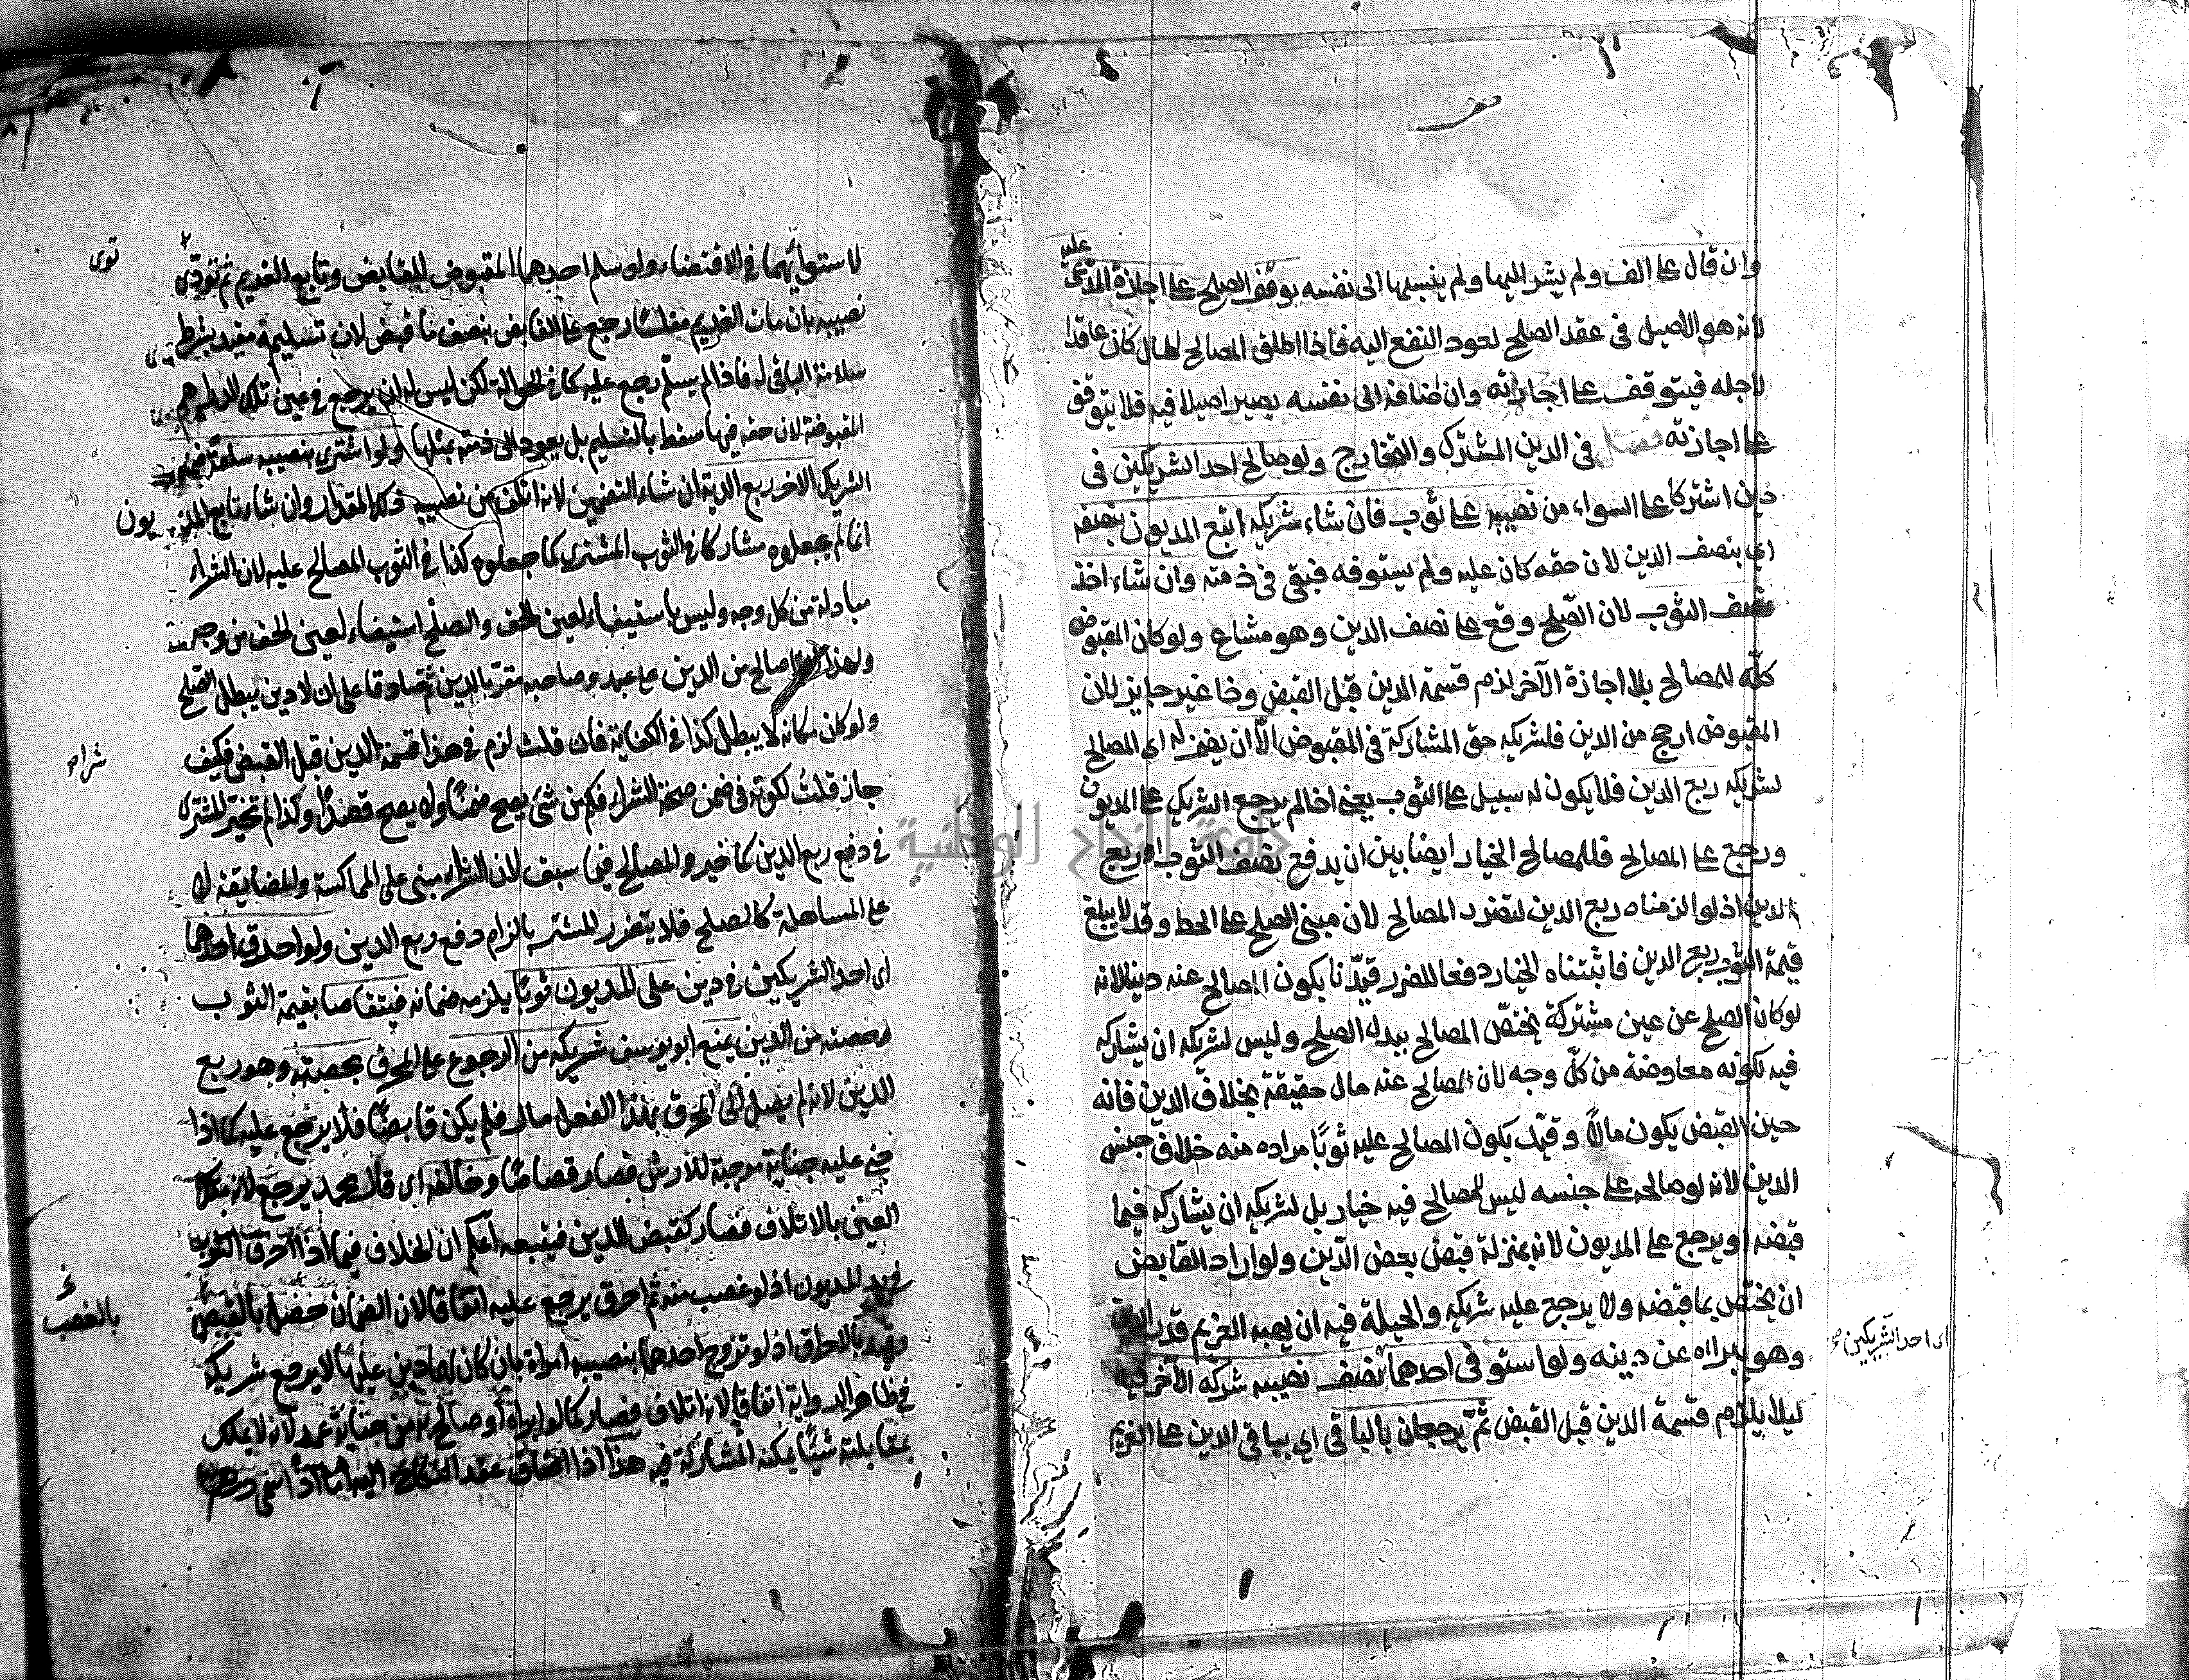 وان قال على الف ولم يشر اليها ولم ينسبها الى نفسه توقف الصلح على اجازة المدعى
عليه
لانه هو الاصيل فى عقد الصلح لعود النفع اليه فاذا اطلق المصالح المال كان عاقدا
لاجله فيتوقف على اجازته وان ضافه الى نفسه يصير اصيلا فيه فلا يتوقف
على اجازته فصل فى الدين المشترك والتخارج ولو صالح احد الشريكين فى
دين اشتركا على السواء من نصيبه على ثوب فان شاء شريكه اتبع المديون بنصفه
اى بنصف الدين لان حقه كان عليه ولم يستوفه فبقى فى ذمته وان شاء اخذ
نصف الثوب لان الصلح وقع على نصف الدين وهو مشاع ولو كان المقبوض
كله للمصالح بلا اجازة الآخر لزم قسمة الدين قبل القبض وذا غير جايز لان
المقبوض ارجح من الدين فلشريكه حق المشاركة فى المقبوض الا ان يضمن له اى المصالح
لشريكه ربع الدين فلا يكون له سبيل على الثوب يعنى اذا لم يرجع الشريك على المديون
ورجع على المصالح فللمصالح الخيار ايضا بين ان يدفع نصف الثوب او ربع
الدين اذ لو الزمناه ربع الدين لتضرر المصالح لان مبنى الصلح على الحط وقد لا يبلغ
قيمة الثوب ربع الدين فاثبتناه الخيار دفعا للضرر قيدنا بكون المصالح عنه دينا لانه
لو كان الصلح عن عين مشتركة يختص المصالح ببدل الصلح وليس لشريكه ان يشاركه
فيه لكونه معاوضة من كل وجه لان المصالح عنه مال حقيقة بخلاف الدين فانه
حين القبض يكون مالا وقيد بكون المصالح عليه ثوبا مراده منه خلاف جنس
الدين لانه لو صالحه على جنسه ليس للمصالح فيه خيار بل لشريكه ان يشاركه فيما
قبضه او يرجع على المديون لانه بمنزلة قبض بعض الدين ولو اراد القابض
ان يختص بما قبضه ولا يرجع عليه شريكه والحيلة فيه ان يهبه الغريم قدر الدين
اى احد الشريكين صح
وهو يبراه عن دينه ولو استوفى احدهما نصف نصيبه شركه الآخر فيه
ليلا يلزم قسمة الدين قبل القبض ثم يرجعان بالباقى اى بباقى الدين على الغريم
لاستوائهما فى الاقتضاء ولو سلم احدهما المقبوض للقابض وتابع الغريم ثم توى
توى
نصيبه بان مات الغريم مفلسا رجع على القابض بنصف ما قبض لان تسليمه مقيد بشرط
سلامة الباقى له فاذا لم يسلم رجع عليه كما فى الحوالة لكن ليس له ان يرجع فى عين تلك الدراهم
المقبوضة لان حقه فيها سقط بالتسليم بل يعود الى ذمته بمثلها ولو اشترى بنصيبه سلعة ضمنه
الشريك الاخر ربع الدين ان شاء التضمين لانه اتلف من نصيبه ذلك المقدار وان شاء تابع المديون
انما لم يجعلوه مشاركا فى الثوب المشترى كما جعلوه كذا فى الثوب المصالح عليه لان الشراء
مبادلة من كل وجه وليس باستيفاء لعين الحق والصلح استيفاء لعين الحق من وجه
ولهذا صالح من الدين على عبد وصاحبه مقر بالدين ثم تصادقا على ان لا دين يبطل الصلح
ولو كان مكانه لا يبطل كذا فى الكفاية فان قلت لزم فى هذا قسمة الدين قبل القبض فكيف
شراء
جاز قلت لكونه فى ضمن صحة الشراء فكم من شئ يصح ضمنا ولا يصح قصدا وكذا لم تخير المشترى
فى دفع ربع الدين كما خير والمصالح فيما سبق لان الشراء مبنى على المماكسة والمضايقة لا
على المساهلة كالصلح فلا يتضرر المشترى بالزام دفع ربع الدين ولو احرق احدهما
اى احد الشريكين فى دين على المديون ثوبا يلزمه ضمانه فيتقاصا بقيمة الثوب
وحصته من الدين يمنع ابو يوسف شريكه من الرجوع على المحرق بحصته وهو ربع
الدين لانه لم يصل الى المحرق بهذا الفعل مال فلم يكن قابضا فلا يرجع عليه كما اذا
جنى عليه جناية موجبة للارش فصار قصاصا وخالفه اى قال محمد يرجع لانه ملك
العين بالاتلاف فصار كقبض الدين فيتبعه اعلم ان الخلاف فيما اذا احرق الثوب
فى يد المديون اذ لو غصب منه ثم احرق يرجع عليه اتفاقا لان الضمان حصل بالقبض
بالغصب
وقيد بالاحراق اذ لو تزوج احدهما بنصيبه امراة بان كان لهما دين عليها لا يرجع شريكه
فى ظاهر الرواية اتفاقا لانه اتلاف فصار كما لو ابراه او صالح به من جناية عمد لانه لا يملك
بمقابلته شيئا يمكنه المشاركة فيه هذا اذا اضاف عقد النكاح اليه اما اذا سمى دراهم